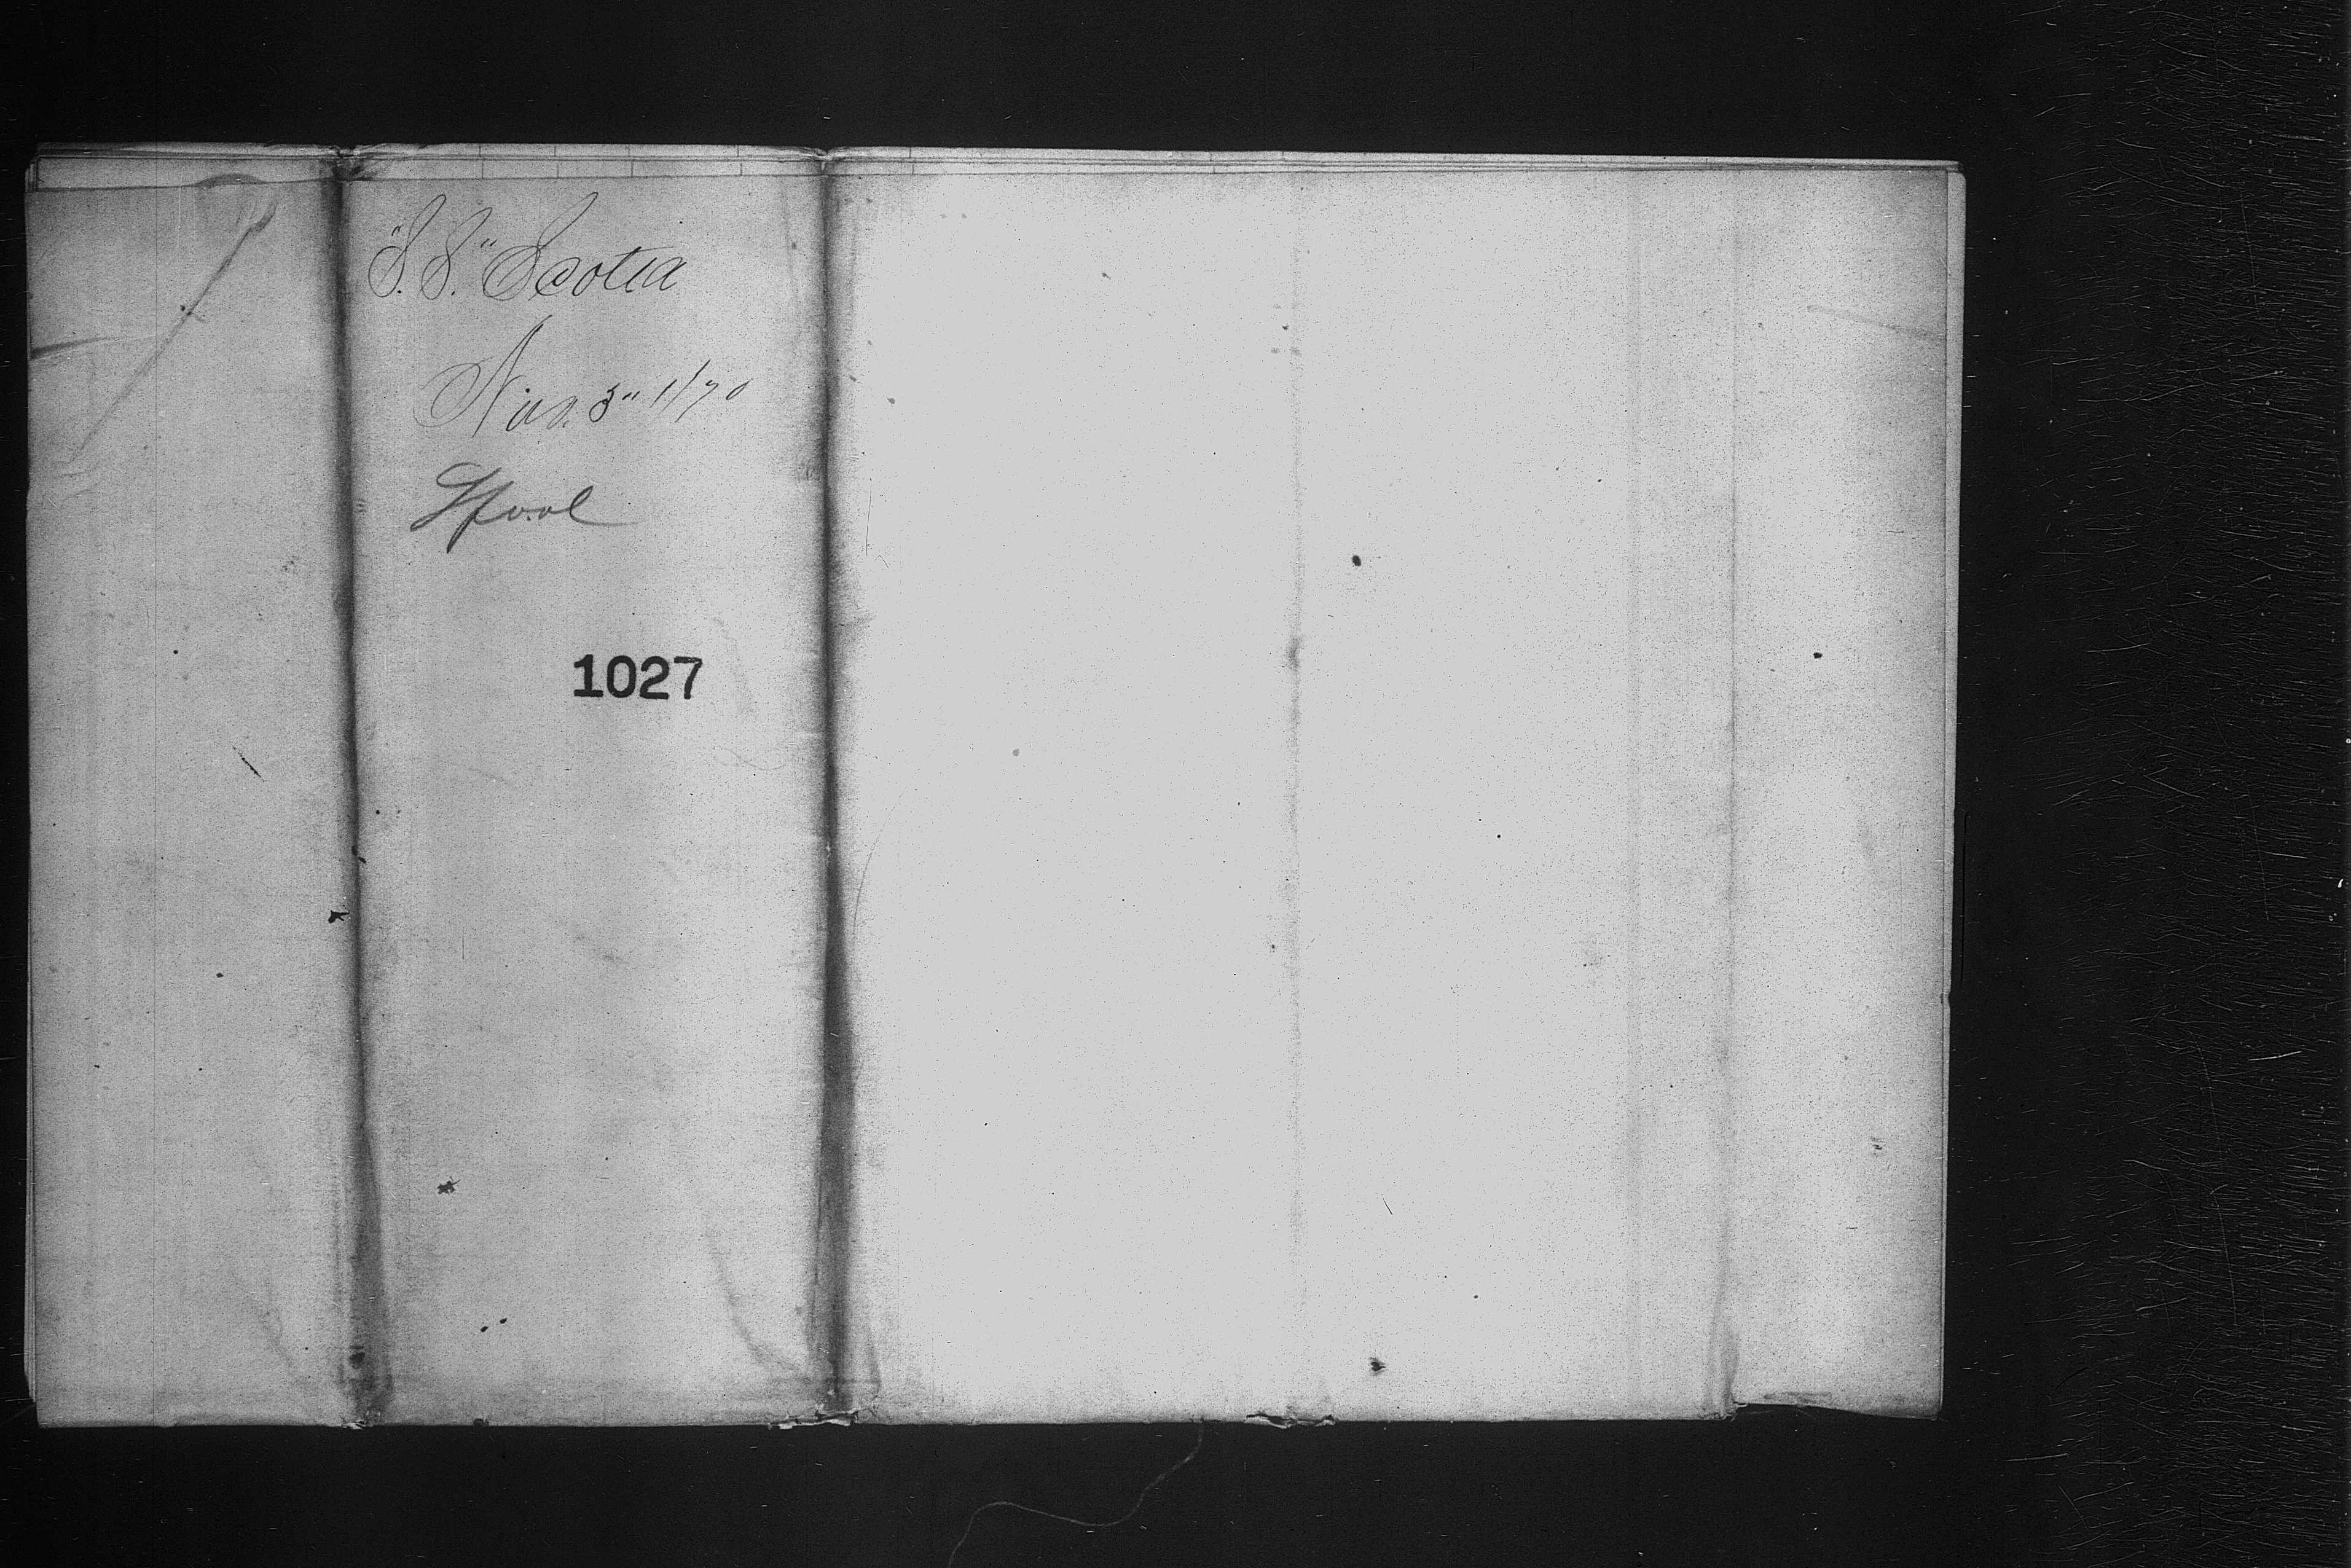 "S.S." Scotia
Nov. 3" 1/70
Lpool
1027